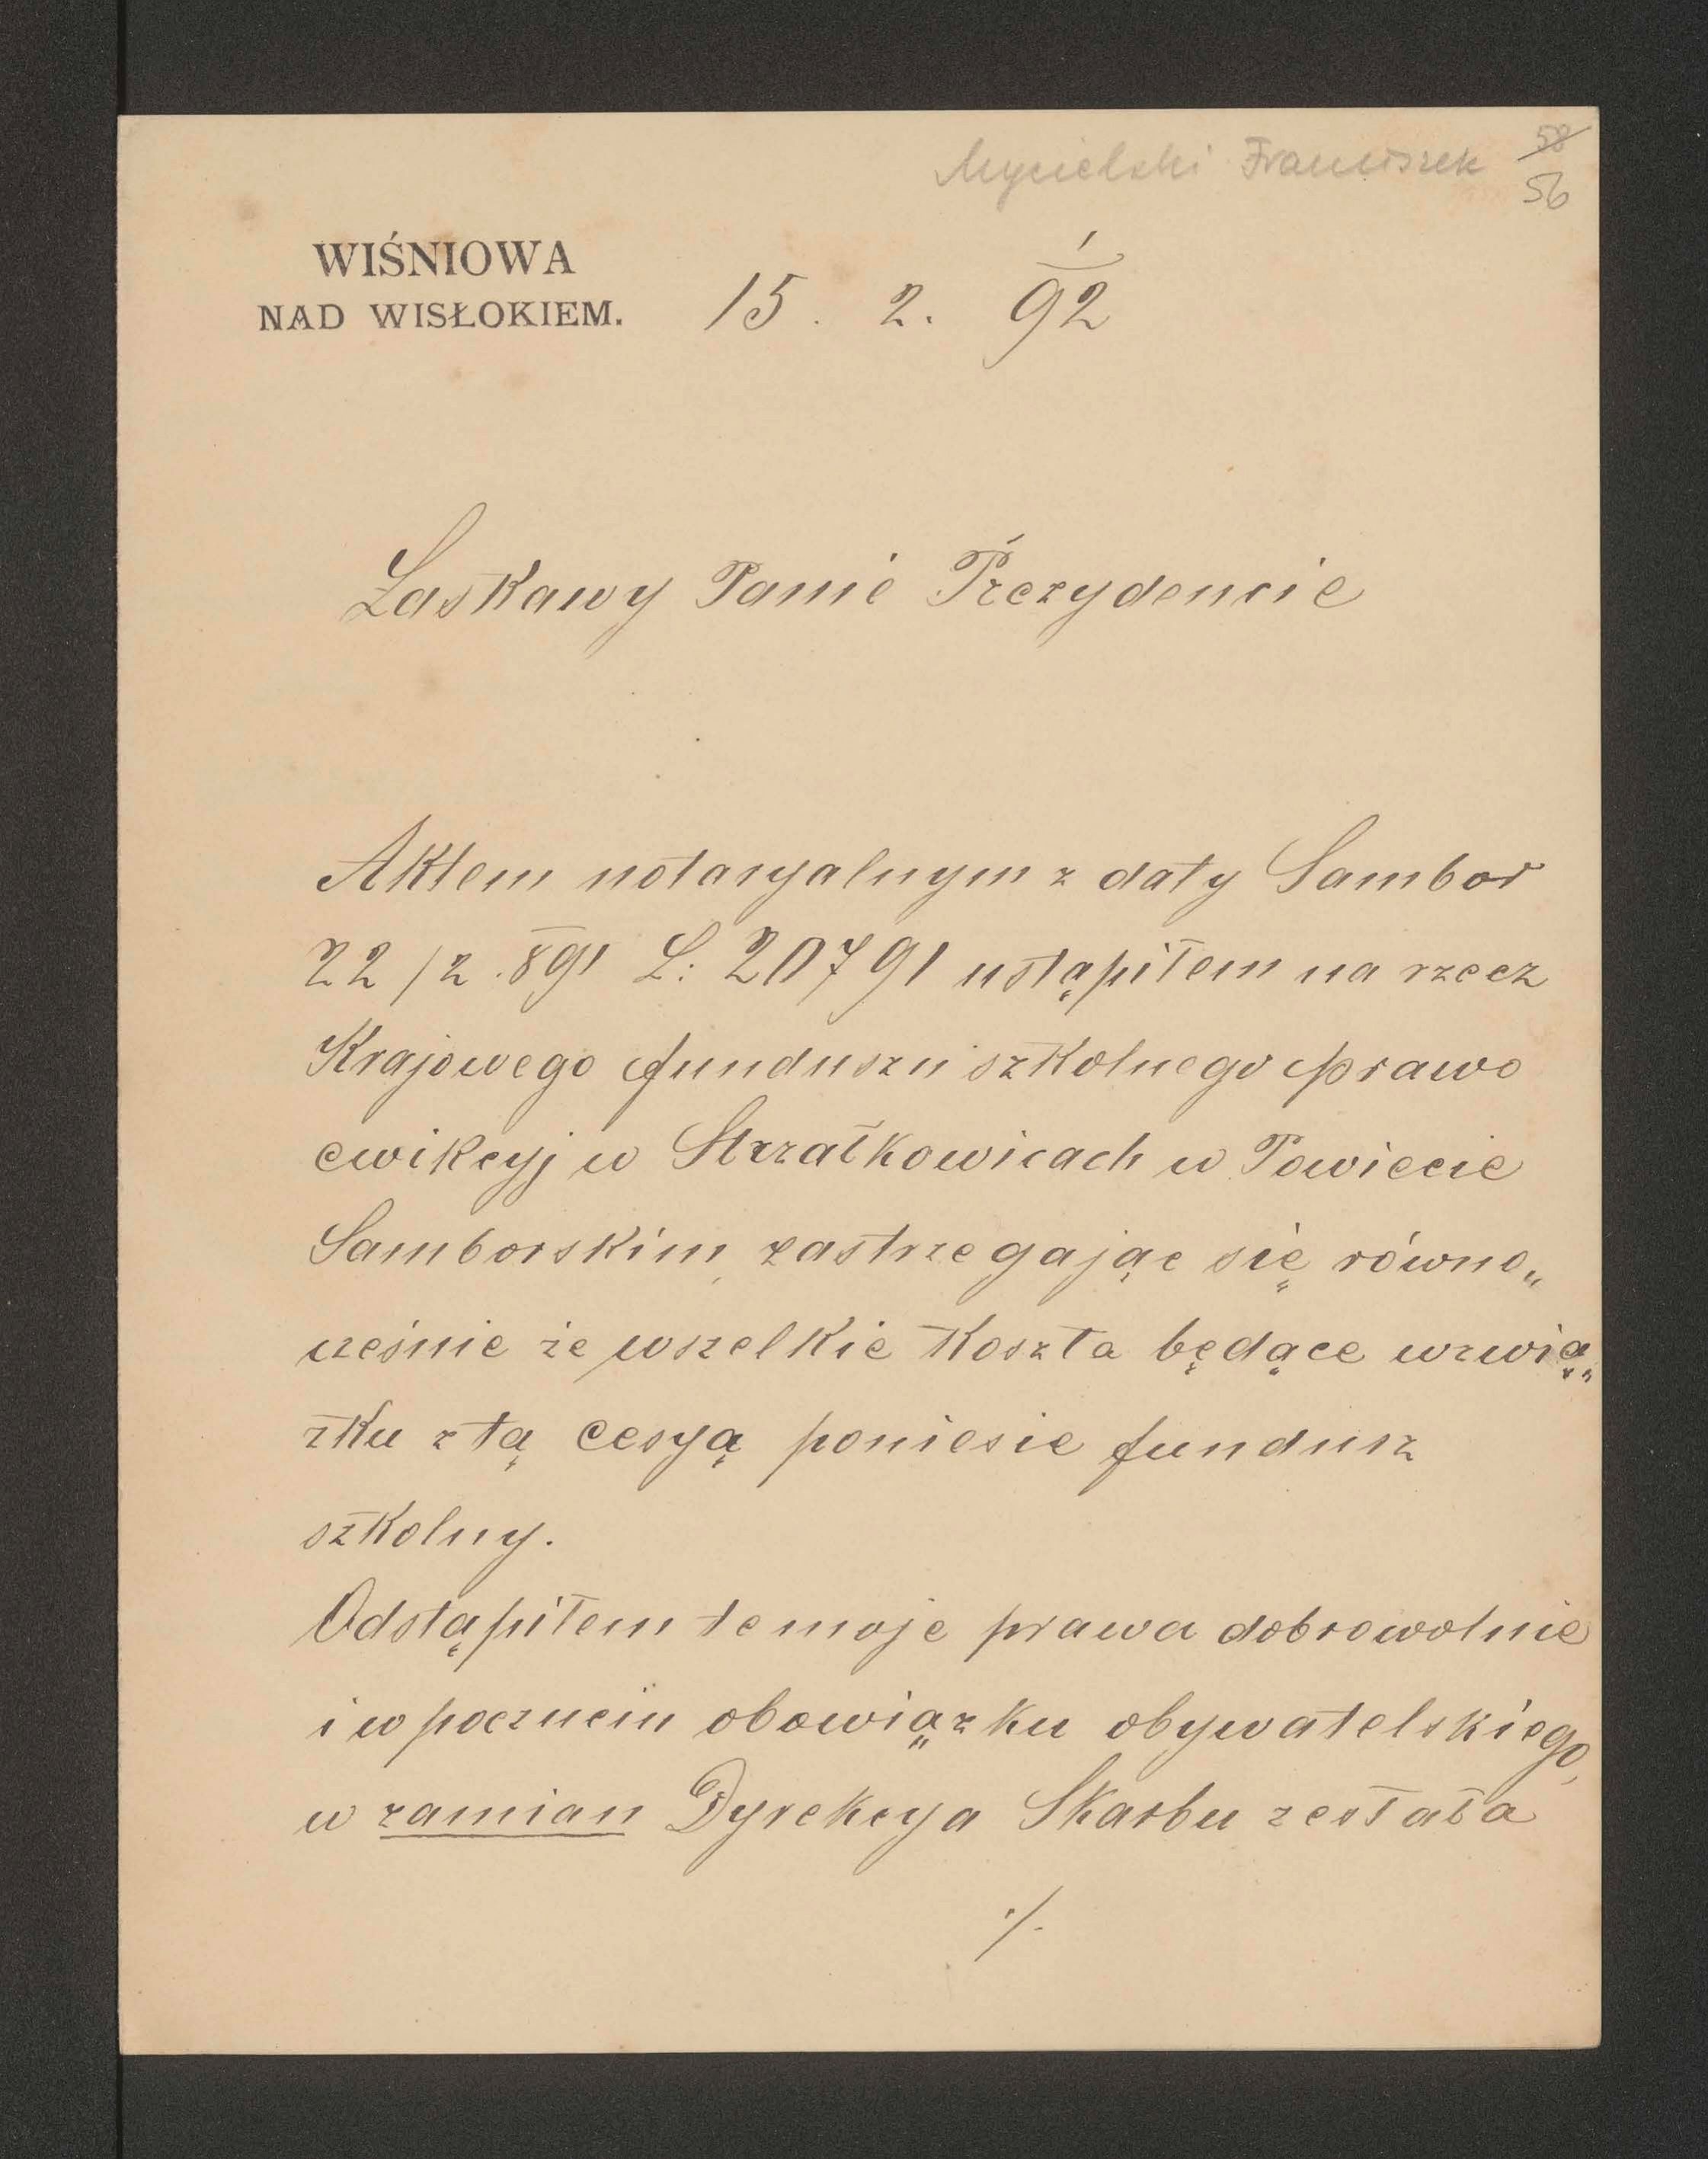 Mycielski Franciszek 58
56
WIŚNIOWA
NAD WISŁOKIEM. 15. 2. 92
Łaskawy Panie Prezydencie
Aktem notaryalnym z daty Sambor
22/2. 891 L: 20791 ustąpiłem na rzecz
Krajowego funduszu szkolnego prawo
ewikcyj w Strzałkowicach w Powiecie
Samborskim, zastrzegając się równo„
cześnie że wszelkie koszta będące w zwią„
zku z tą cesyą poniesie fundusz
szkolny.
Odstąpiłem te moje prawa dobrowolnie
i w poczuciu obowiązku obywatelskiego,
w zamian Dyrekcya Skarbu zesłała
./.